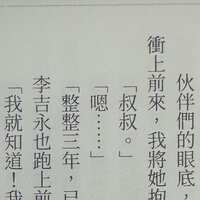 伙伴們的眼底，
衝上前來，我將她抱
「叔叔。」
「嗯⋯⋯」
「整整三年，已
李吉永也跑上前
「我就知道！我